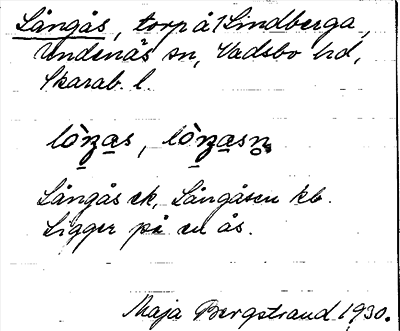 Långås, torp å Lindberga,
Undenäs sn, Vadsbo hd,
Skarab. l.
lò̀ŋas, lò̀ŋasn̥
Långås ek. Långåsen kb.
Ligger på en ås.
Maja Bergstrand 1930.